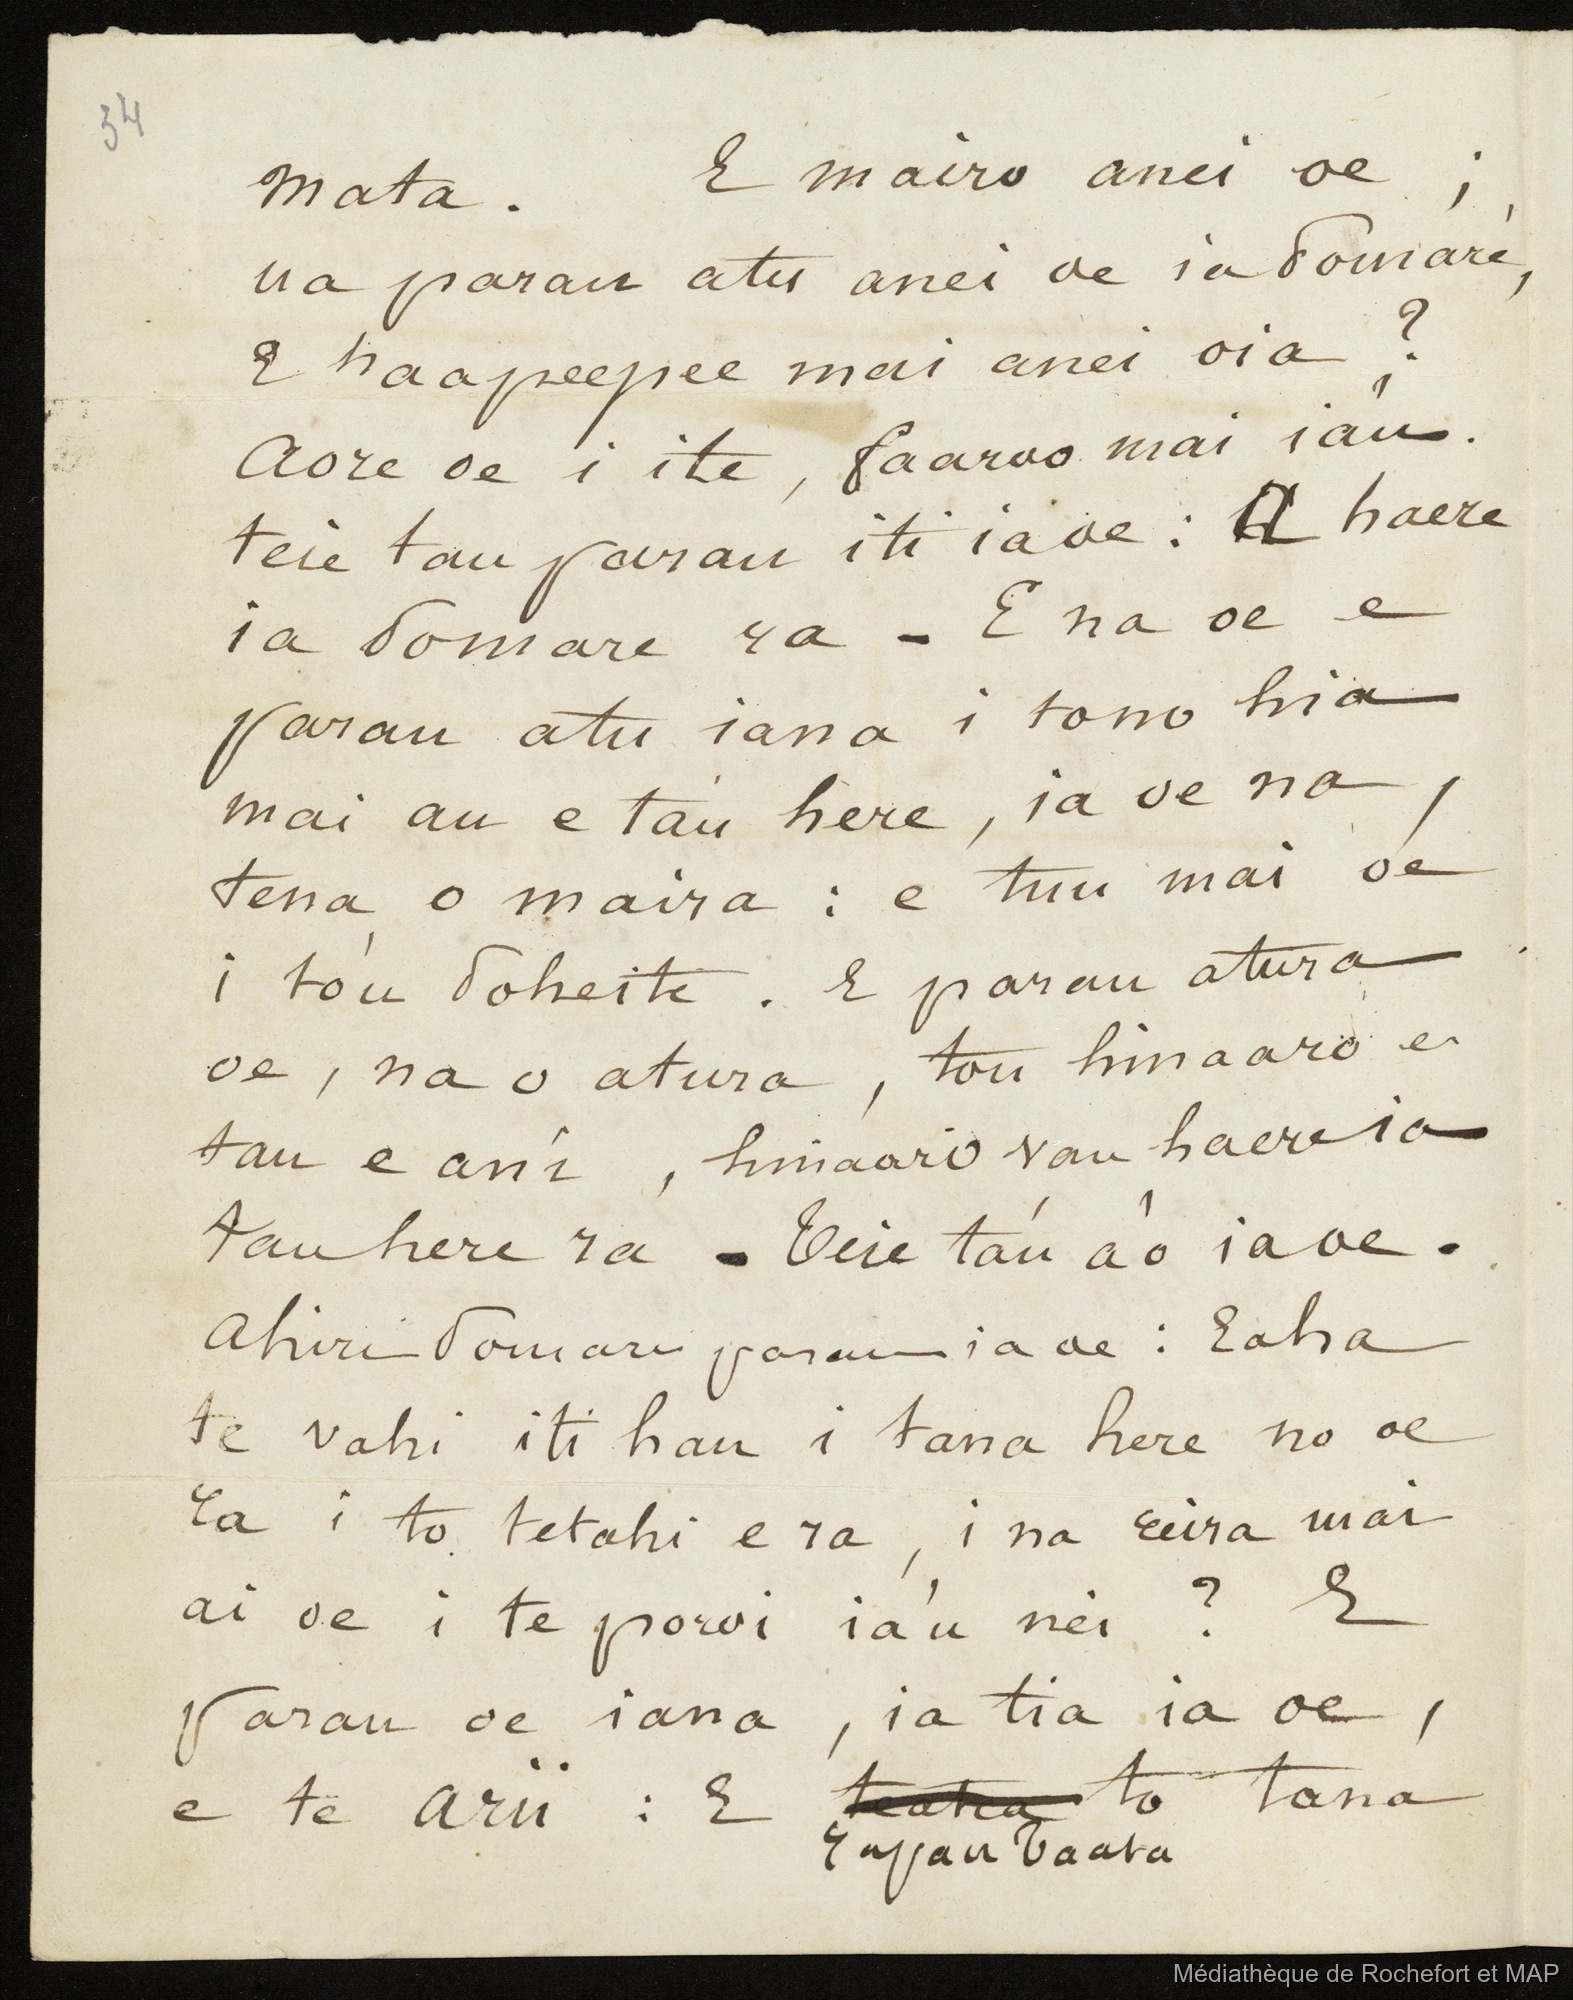 34
mata. E mairo anei oe ;
ua parau atu anei oe ia Tomáré,
E haapeepee mai anei oia ?
Aore oe i ite, faaroo mai iáu.
teie tau parau iti ia oe : A haere
ia Tomare ra - E na oe e
parau atu iana i tono hia
mai au e táu here, ia oe na,
tena o maira : e tuu mai oe
i tóu Toheite. E parau atura
oe, na o atura, tou hinaaro e
tau e ani, hinaaro vau haere ia
tau here ra - Teie táu áó ia oe.
Ahiri Tomare parau ia oe : Eaha
te vahi iti hau i tana here no oe
ra i to tetahi era, i na reira mai
ai oe i te poroi iáu nei ? E
parau oe iana, ia tia ia oe,
e te Arii : E to tana
rapau Taata
Médiathèque de Rochefort et MAP